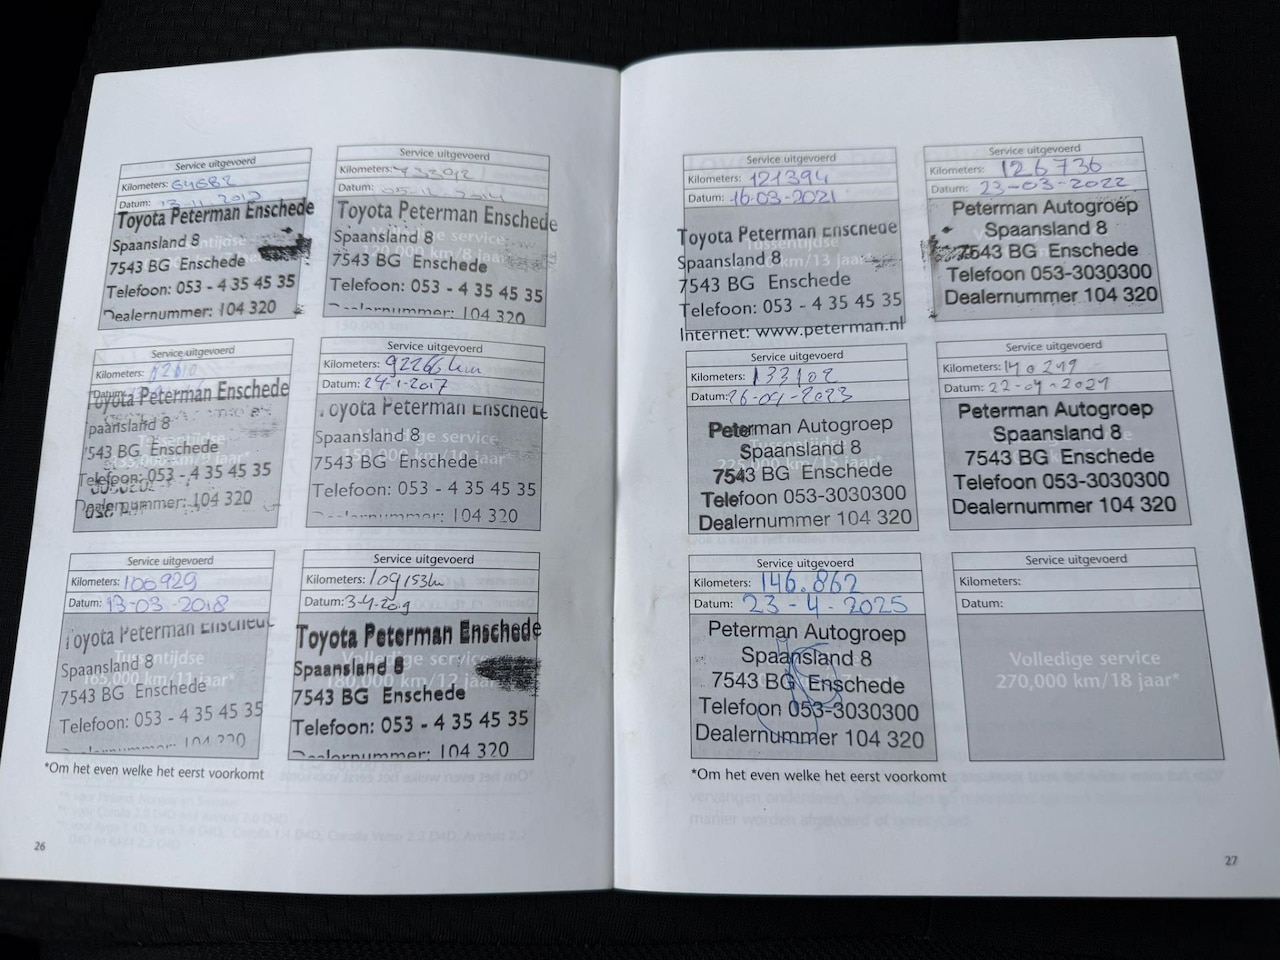 Service uitgevoerd
Kilometers: 64682
Datum:
Toyota Peterman Enschede
Spaansland 8
7543 BG Enschede
Telefoon: 053 - 4 35 45 35
Dealernummer: 104 320
Service uitgevoerd
Kilometers:
Datum:
Toyota Peterman Enschede
Spaansland 8
7543 BG Enschede
Telefoon: 053 - 4 35 45 35
Dealernummer: 104 320
Service uitgevoerd
Kilometers:
Datum:
Toyota Peterman Enschede
Spaansland 8
7543 BG Enschede
Telefoon: 053 - 4 35 45 35
Dealernummer: 104 320
Service uitgevoerd
Kilometers: 92266 km
Datum: 24-1-2017
Toyota Peterman Enschede
Spaansland 8
7543 BG Enschede
Telefoon: 053 - 4 35 45 35
Dealernummer: 104 320
Service uitgevoerd
Kilometers: 106929
Datum: 13-03-2018
Toyota Peterman Enschede
Spaansland 8
7543 BG Enschede
Telefoon: 053 - 4 35 45 35
Dealernummer: 104 320
Service uitgevoerd
Kilometers: 109153km
Datum: 3-4-2019
Toyota Peterman Enschede
Spaansland 8
7543 BG Enschede
Telefoon: 053 - 4 35 45 35
Dealernummer: 104 320
*Om het even welke het eerst voorkomt
26
Service uitgevoerd
Kilometers: 121394
Datum: 16-03-2021
Toyota Peterman Enschede
Spaansland 8
7543 BG Enschede
Telefoon: 053 - 4 35 45 35
Internet: www.peterman.nl
Service uitgevoerd
Kilometers: 126736
Datum: 23-03-2022
Peterman Autogroep
Spaansland 8
7543 BG Enschede
Telefoon 053-3030300
Dealernummer 104 320
Service uitgevoerd
Kilometers: 133102
Datum: 26-04-2023
Peterman Autogroep
Spaansland 8
7543 BG Enschede
Telefoon 053-3030300
Dealernummer 104 320
Service uitgevoerd
Kilometers: 140219
Datum:
Peterman Autogroep
Spaansland 8
7543 BG Enschede
Telefoon 053-3030300
Dealernummer 104 320
Service uitgevoerd
Kilometers: 146.862
Datum: 23-4-2025
Peterman Autogroep
Spaansland 8
7543 BG Enschede
Telefoon 053-3030300
Dealernummer 104 320
Service uitgevoerd
Kilometers:
Datum:
Volledige service
270,000 km/18 jaar*
*Om het even welke het eerst voorkomt
27